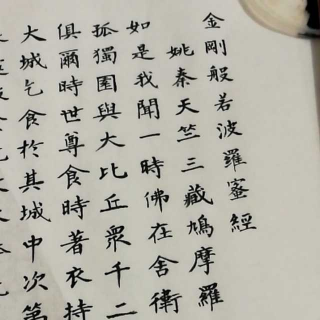 金剛般若波羅蜜經
姚秦天竺三藏鳩摩羅
如是我聞一時佛在舍衛
孤獨園與大比丘眾千二
俱爾時世尊食時著衣持
大城乞食於其城中次第